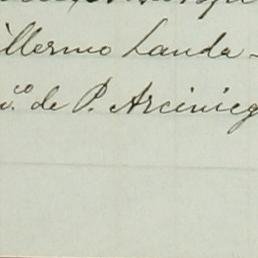 illermo Landa -
co. de P. Arcinieg